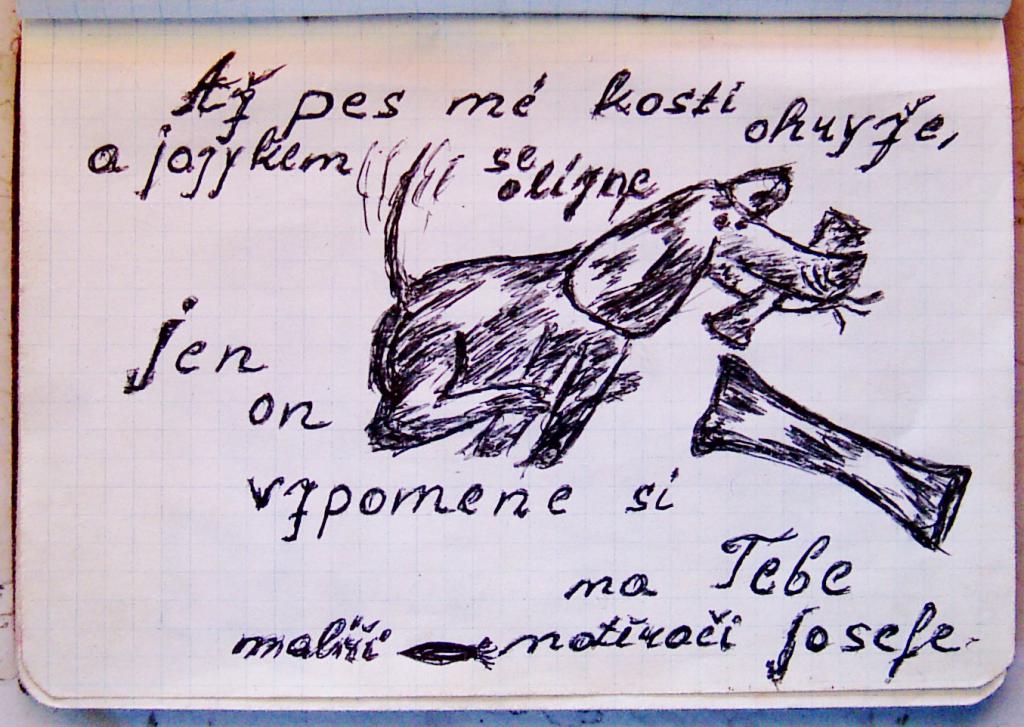 Až pes mé kosti ohryže,
a jazykem se olizne
jen
on
vzpomene si
na Tebe
malíři natěrači Josefe.